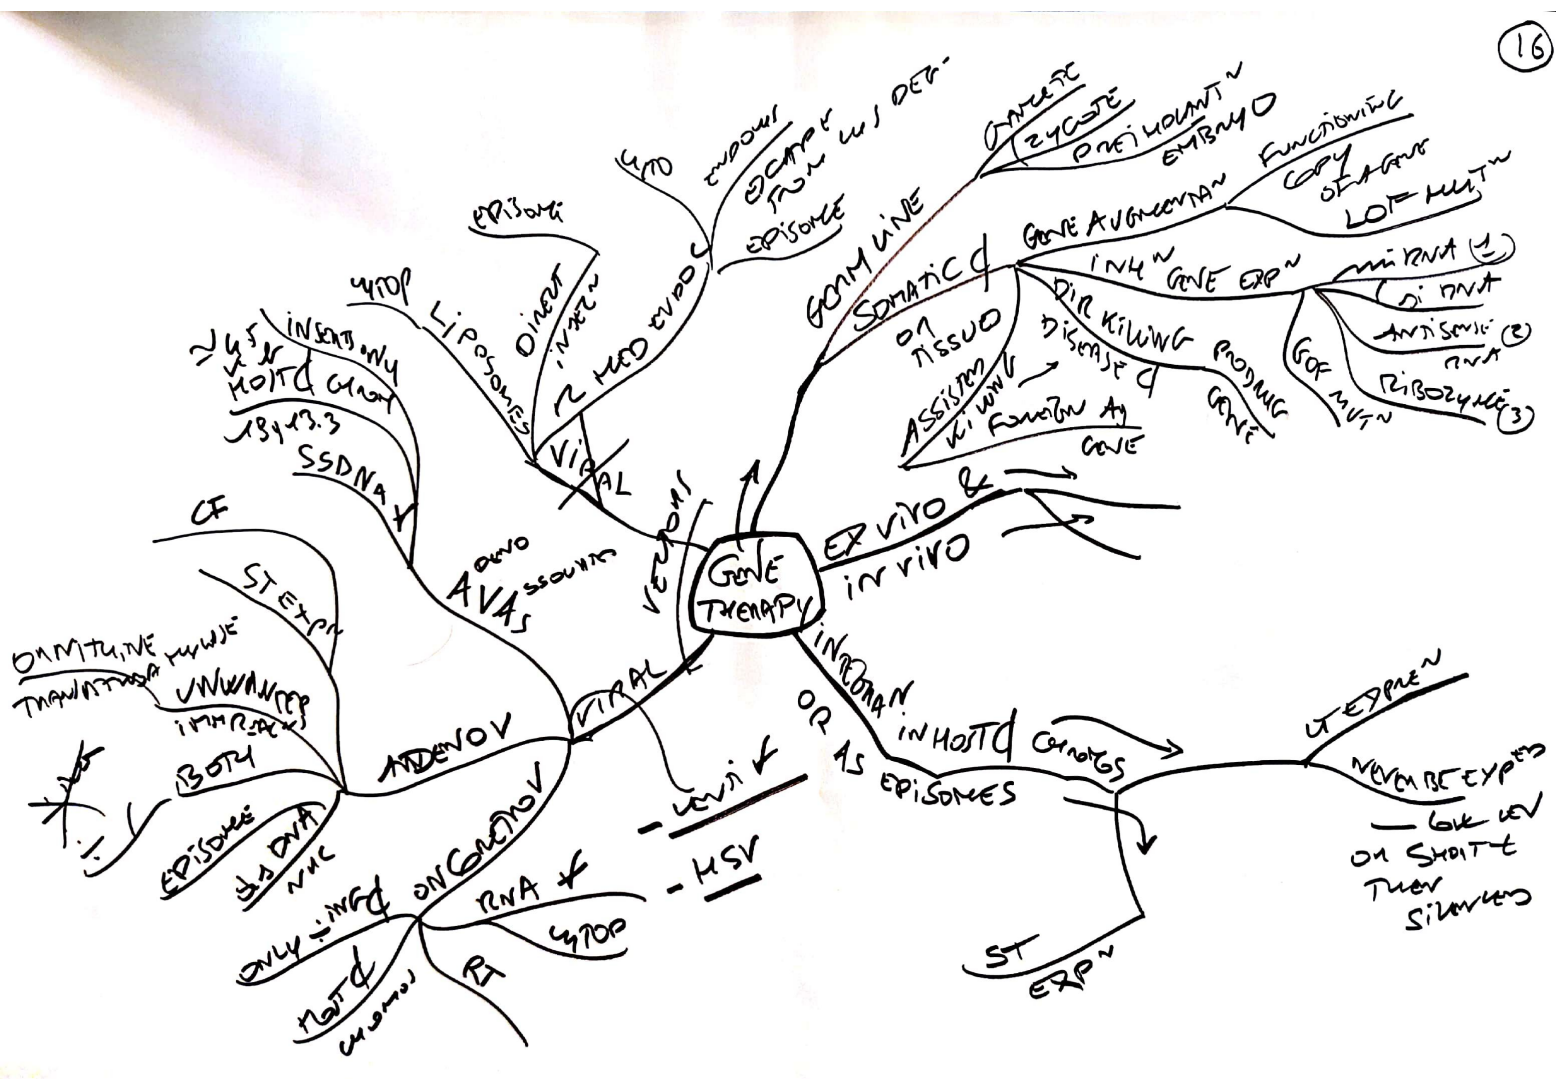 16
GENE
THERAPY
GERM LINE
GAMETE
ZYGOTE
PREIMPLANTN
EMBRYO
SOMATIC C
OR
TISSUE
GENE AUGMENTAN
FUNCTIONING
COPY
OF A GENE
LOF MUTN
INHN GENE EXPN
miRNA (1)
Di RNA
ANTISENSE (2)
RNA
RIBOZYME (3)
GOF
MUTN
DIR KILLING
DISEASE C
PRODRUG
GENE
ASSISTED
KILLING
FOREIGN Ag
GENE
EX VIVO &
IN VIVO
INTEGRAN
OR AS EPISOMES
IN HOST C CHROMOS
LT EXPREN
NEVER BE EXPED
— LOW LEV
OR SHORT t
THEN
SILENCED
ST
EXPN
VECTORS
VIRAL
LIPOSOMES
CYTOP
DIRECT
INJECN
EPISOME
R MED ENDOC
CYTO
ENDOMS
ESCAPE
FROM LYS DEG-
EPISOME
VIRAL
- LENTI
- HSV
ADENO
AVASSOCIATED
SSDNA
INSERTS ONLY
≈ 4.5
HOST C CHROM
19q13.3
ADENO V
CF
ST EXPN
UNWANTED
IMM REACNS
ORNITHINE
TRANSCARBAMYLASE
BOTH
EPISOME
ds DNA
NHC
ONCORETROV
RNA
CYTOP
RT
HOST C
CHROMOS
ONLY ÷ING C